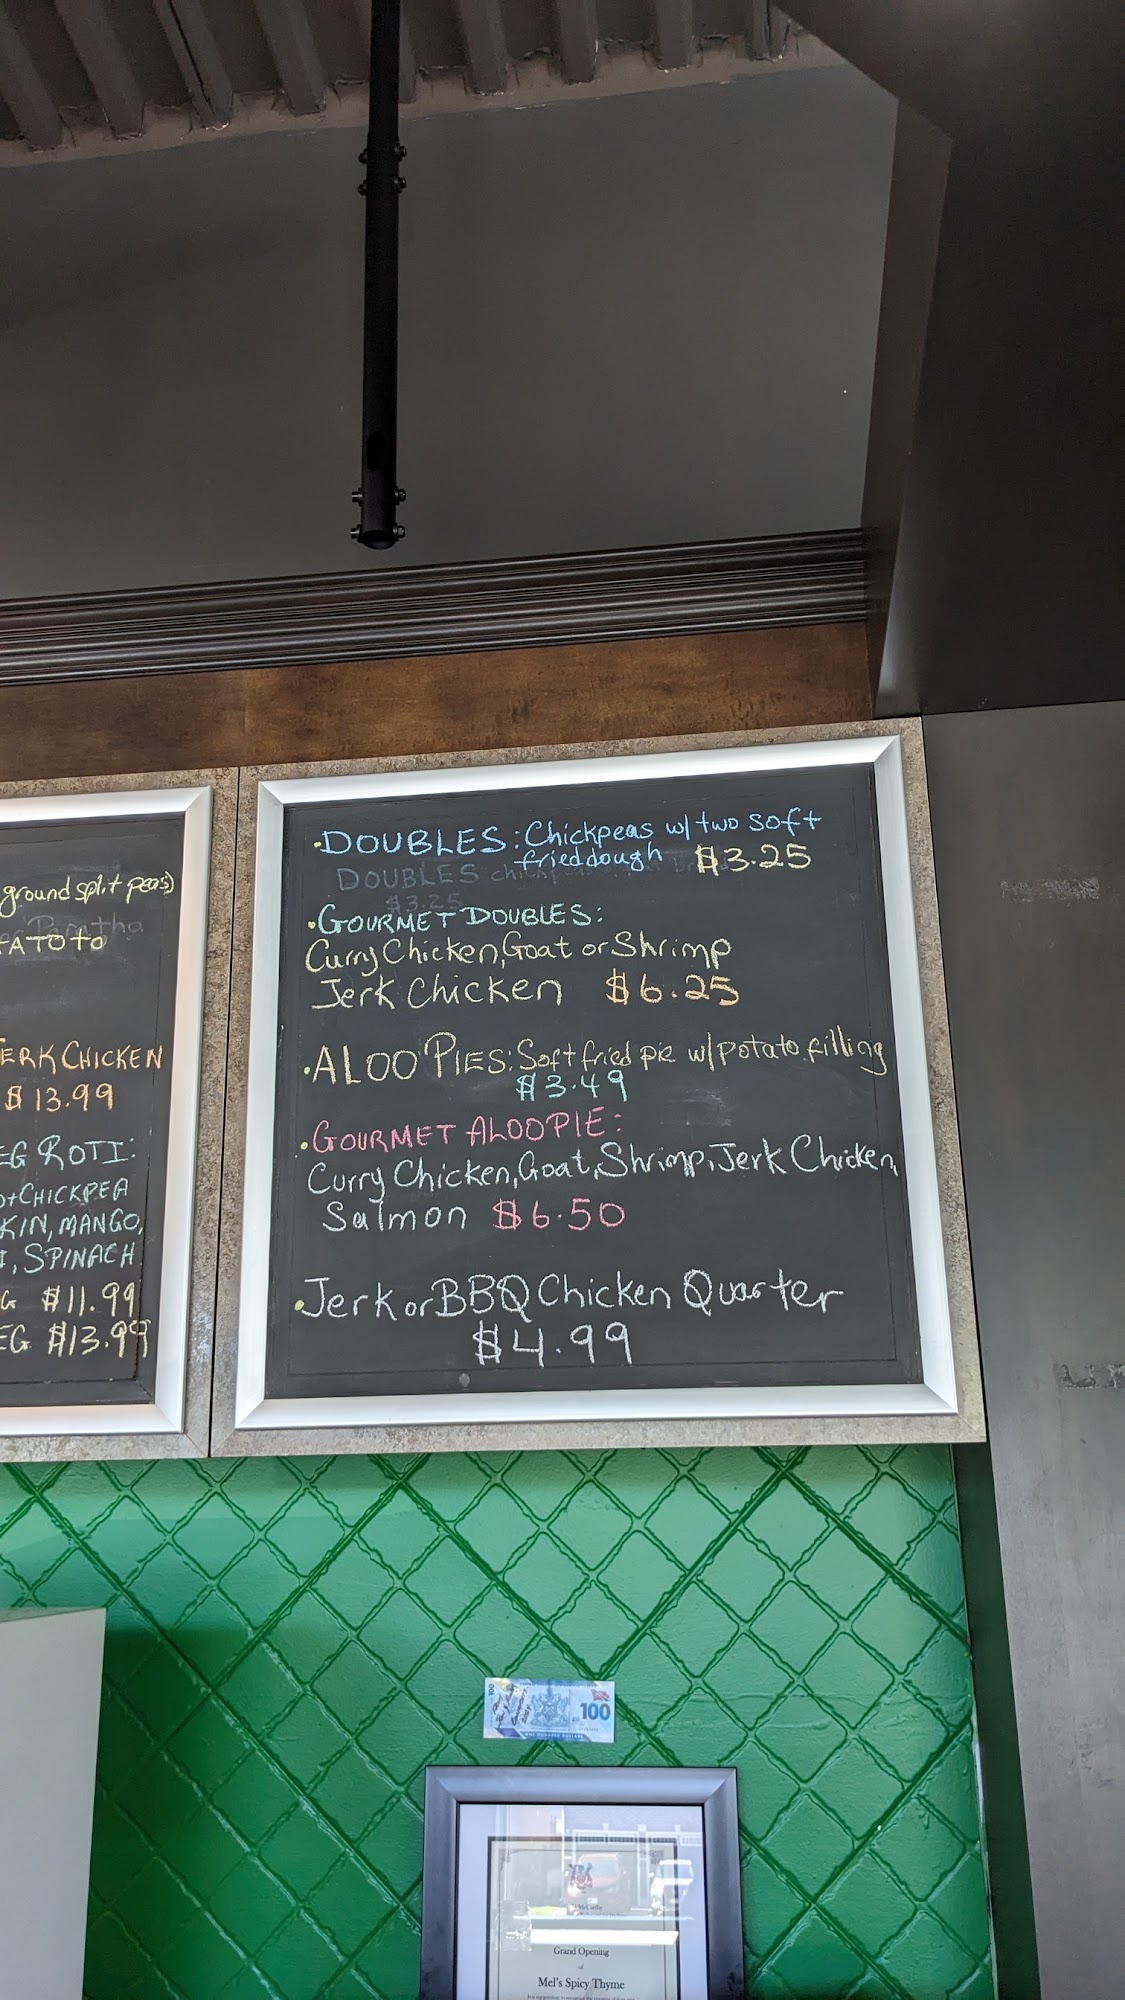 ground split peas)
TATOTO
JERK CHICKEN
$13.99
EG ROTI:
CHICKPEA
KIN, MANGO,
I, SPINACH
G $11.99
EG $13.99
•DOUBLES: Chickpeas w/ two soft
fried dough $3.25
DOUBLES
$3.25
•GOURMET DOUBLES:
Curry Chicken, Goat or Shrimp
Jerk Chicken $6.25
•ALOO PIES: Soft fried pie w/ potato filling
$3.49
•GOURMET ALOOPIE:
Curry Chicken, Goat, Shrimp, Jerk Chicken,
Salmon $6.50
•Jerk or BBQ Chicken Quarter
$4.99
100
100
ONE HUNDRED DOLLARS
Grand Opening
of
Mel's Spicy Thyme